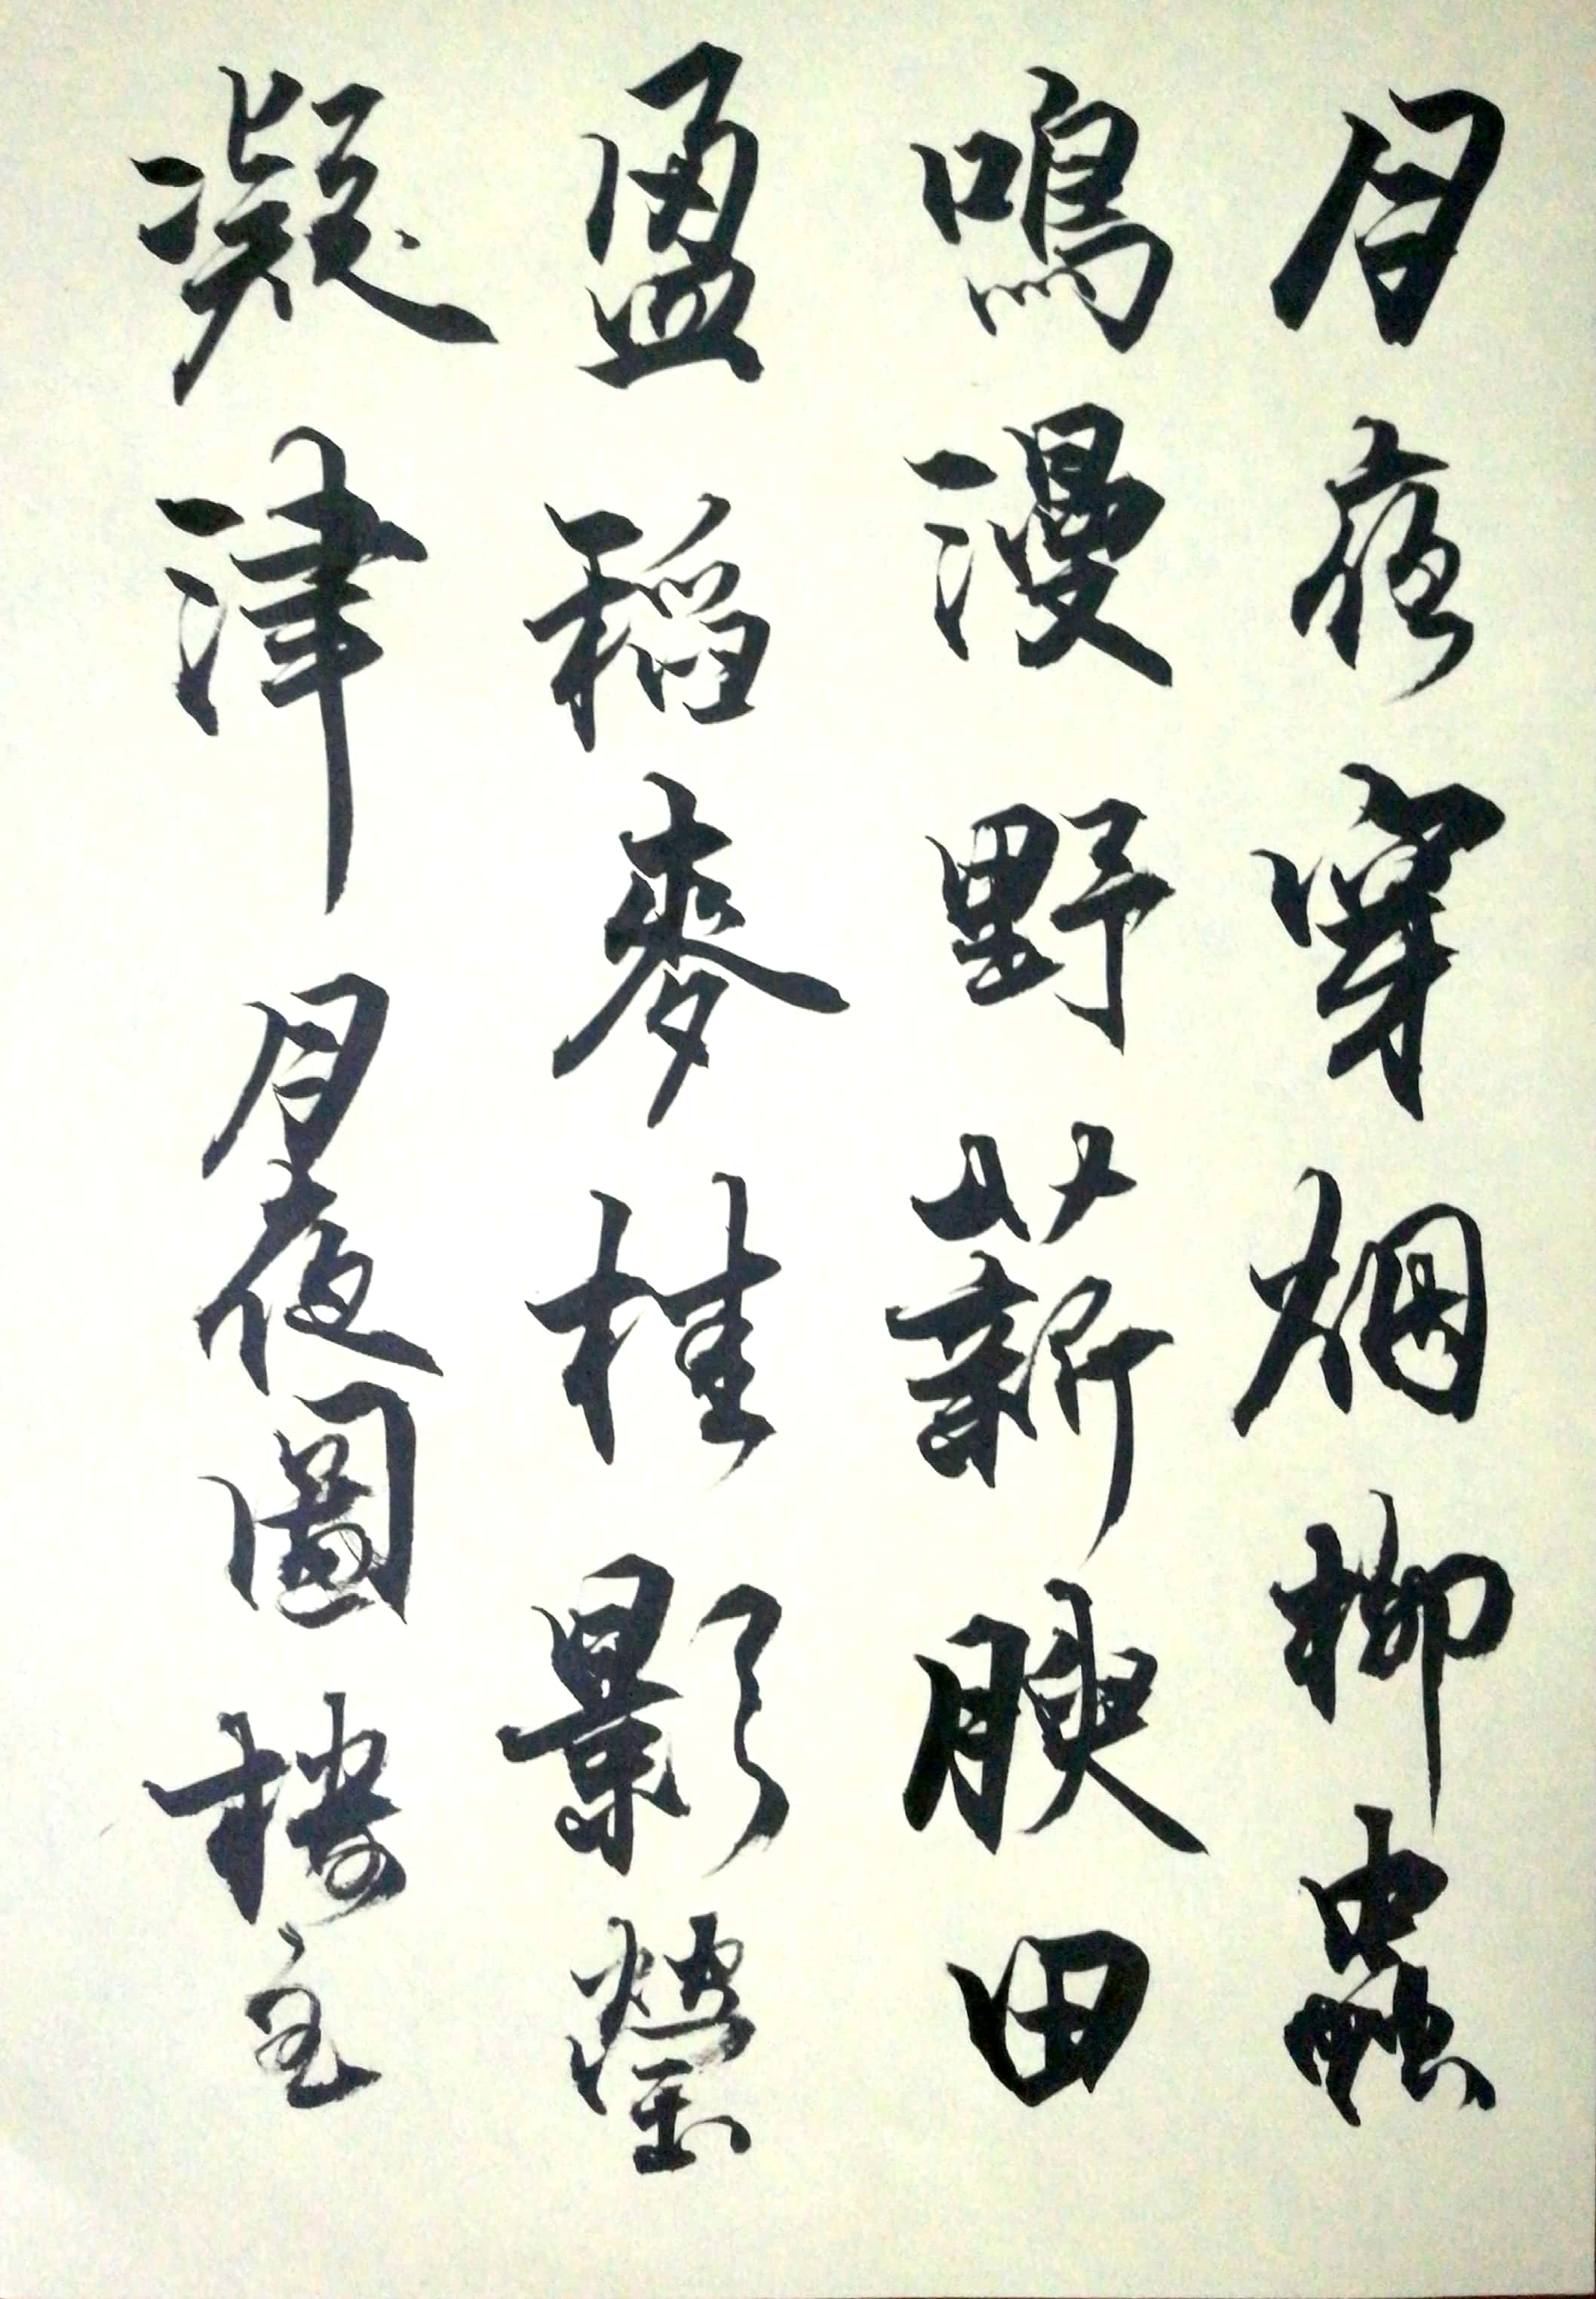 月夜穿烟柳蟲
鳴漫野薪腴田
盈稻麥桂影瑩
凝津 月夜圖 樓主